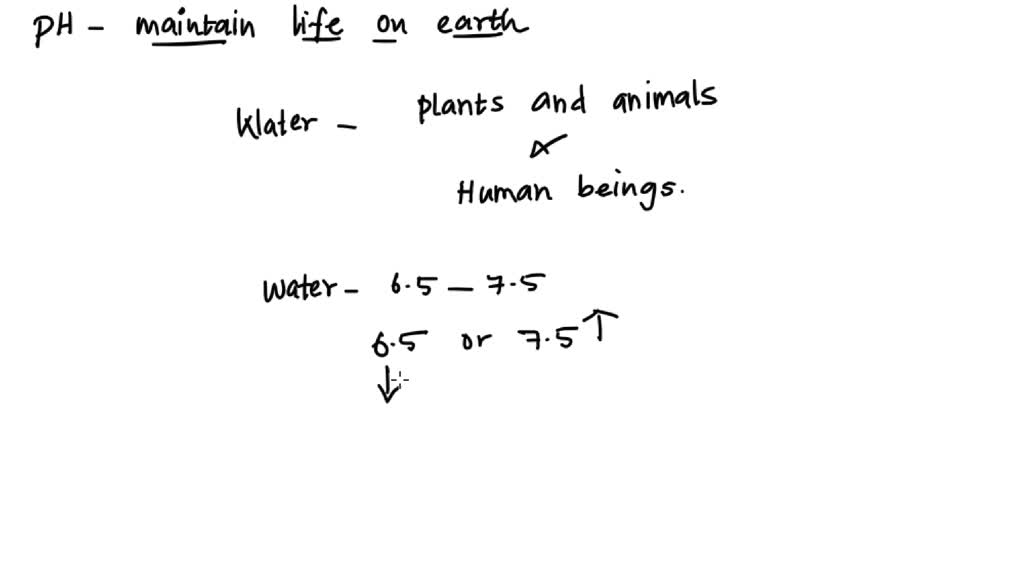 PH - maintain life on earth
Klater - plants and animals
Human beings.
water - 6.5 - 7.5
6.5 or 7.5 ↑
↓